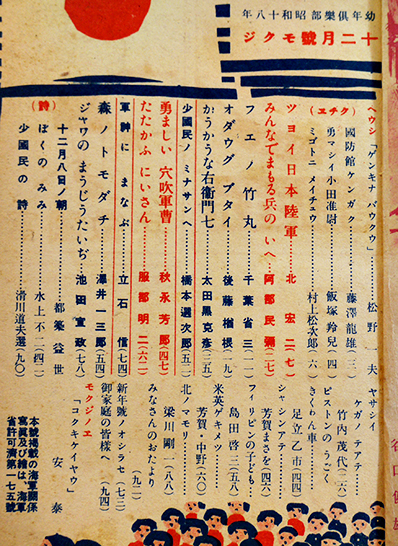 幼年俱樂部 昭和十八年
十二月號 モクジ
ヘウシ「ゲンキナ バウクウ」……松野一夫
(ヱチク)
國防館ケンガク……藤澤龍雄(三)
勇マシイ小田准尉……飯塚羚兒(四)
ミゴトニ メイチュウ……村上松次郎(六)
ツヨイ日本陸軍……北 宏二(七)
みんなでまもる兵のいへ…阿部民彌(二七)
フエノ竹丸……千葉省三(一一)
オダウグ ブタイ……後藤楢根(一九)
かうかうな右衞門七……太田黒克彦(三五)
少國民ノ ミナサンヘ……橋本選次郎(五二)
勇ましい 穴吹軍曹……秋永芳郎(四七)
たたかふ にいさん……服部明二(六二)
軍神に まなぶ……立石信(七四)
森ノ トモダチ……澤井一三郎(五四)
ジャワの まうじうたいぢ…池田宣政(七八)
(詩)
十二月八日ノ朝……都築益世
ぼくのみみ……水上不二(四二)
少國民の詩……滑川道夫選(九〇)
ヤサシイ
ケガノ テアテ…竹内茂代(二六)
ピストンの うごく
きくわん車……足立乙市(四四)
シャシンブンテン
フィリピンの子ども…芳賀まさを(四六)
米英ゲキメツ……島田啓三(五八)
北ノ マモリ……芳賀・中野(六〇)
みなさんのおたより……梁川剛一(八八)
(九二)
新年號ノオシラセ(七三)
御家庭の皆様へ(九四)
モクジノヱ
「コクキケイヤウ」……安泰
本號掲載の海軍關係
寫眞及び繪は、海軍
省許可濟第一七五號